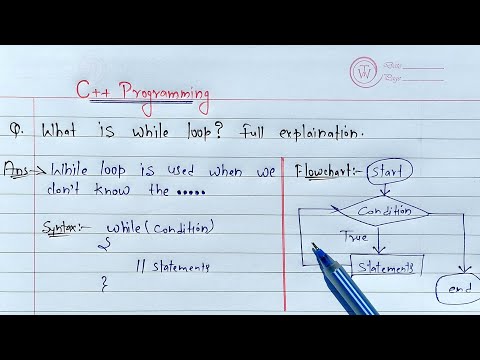 TW
Date
Page
C++ Programming
Q. What is while loop? full explaination.
Ans:-> While loop is used when we
don't know the .....
Syntax:- while (Condition)
{
// statements
}
Flowchart:-
Start
Condition
True
Statements
end